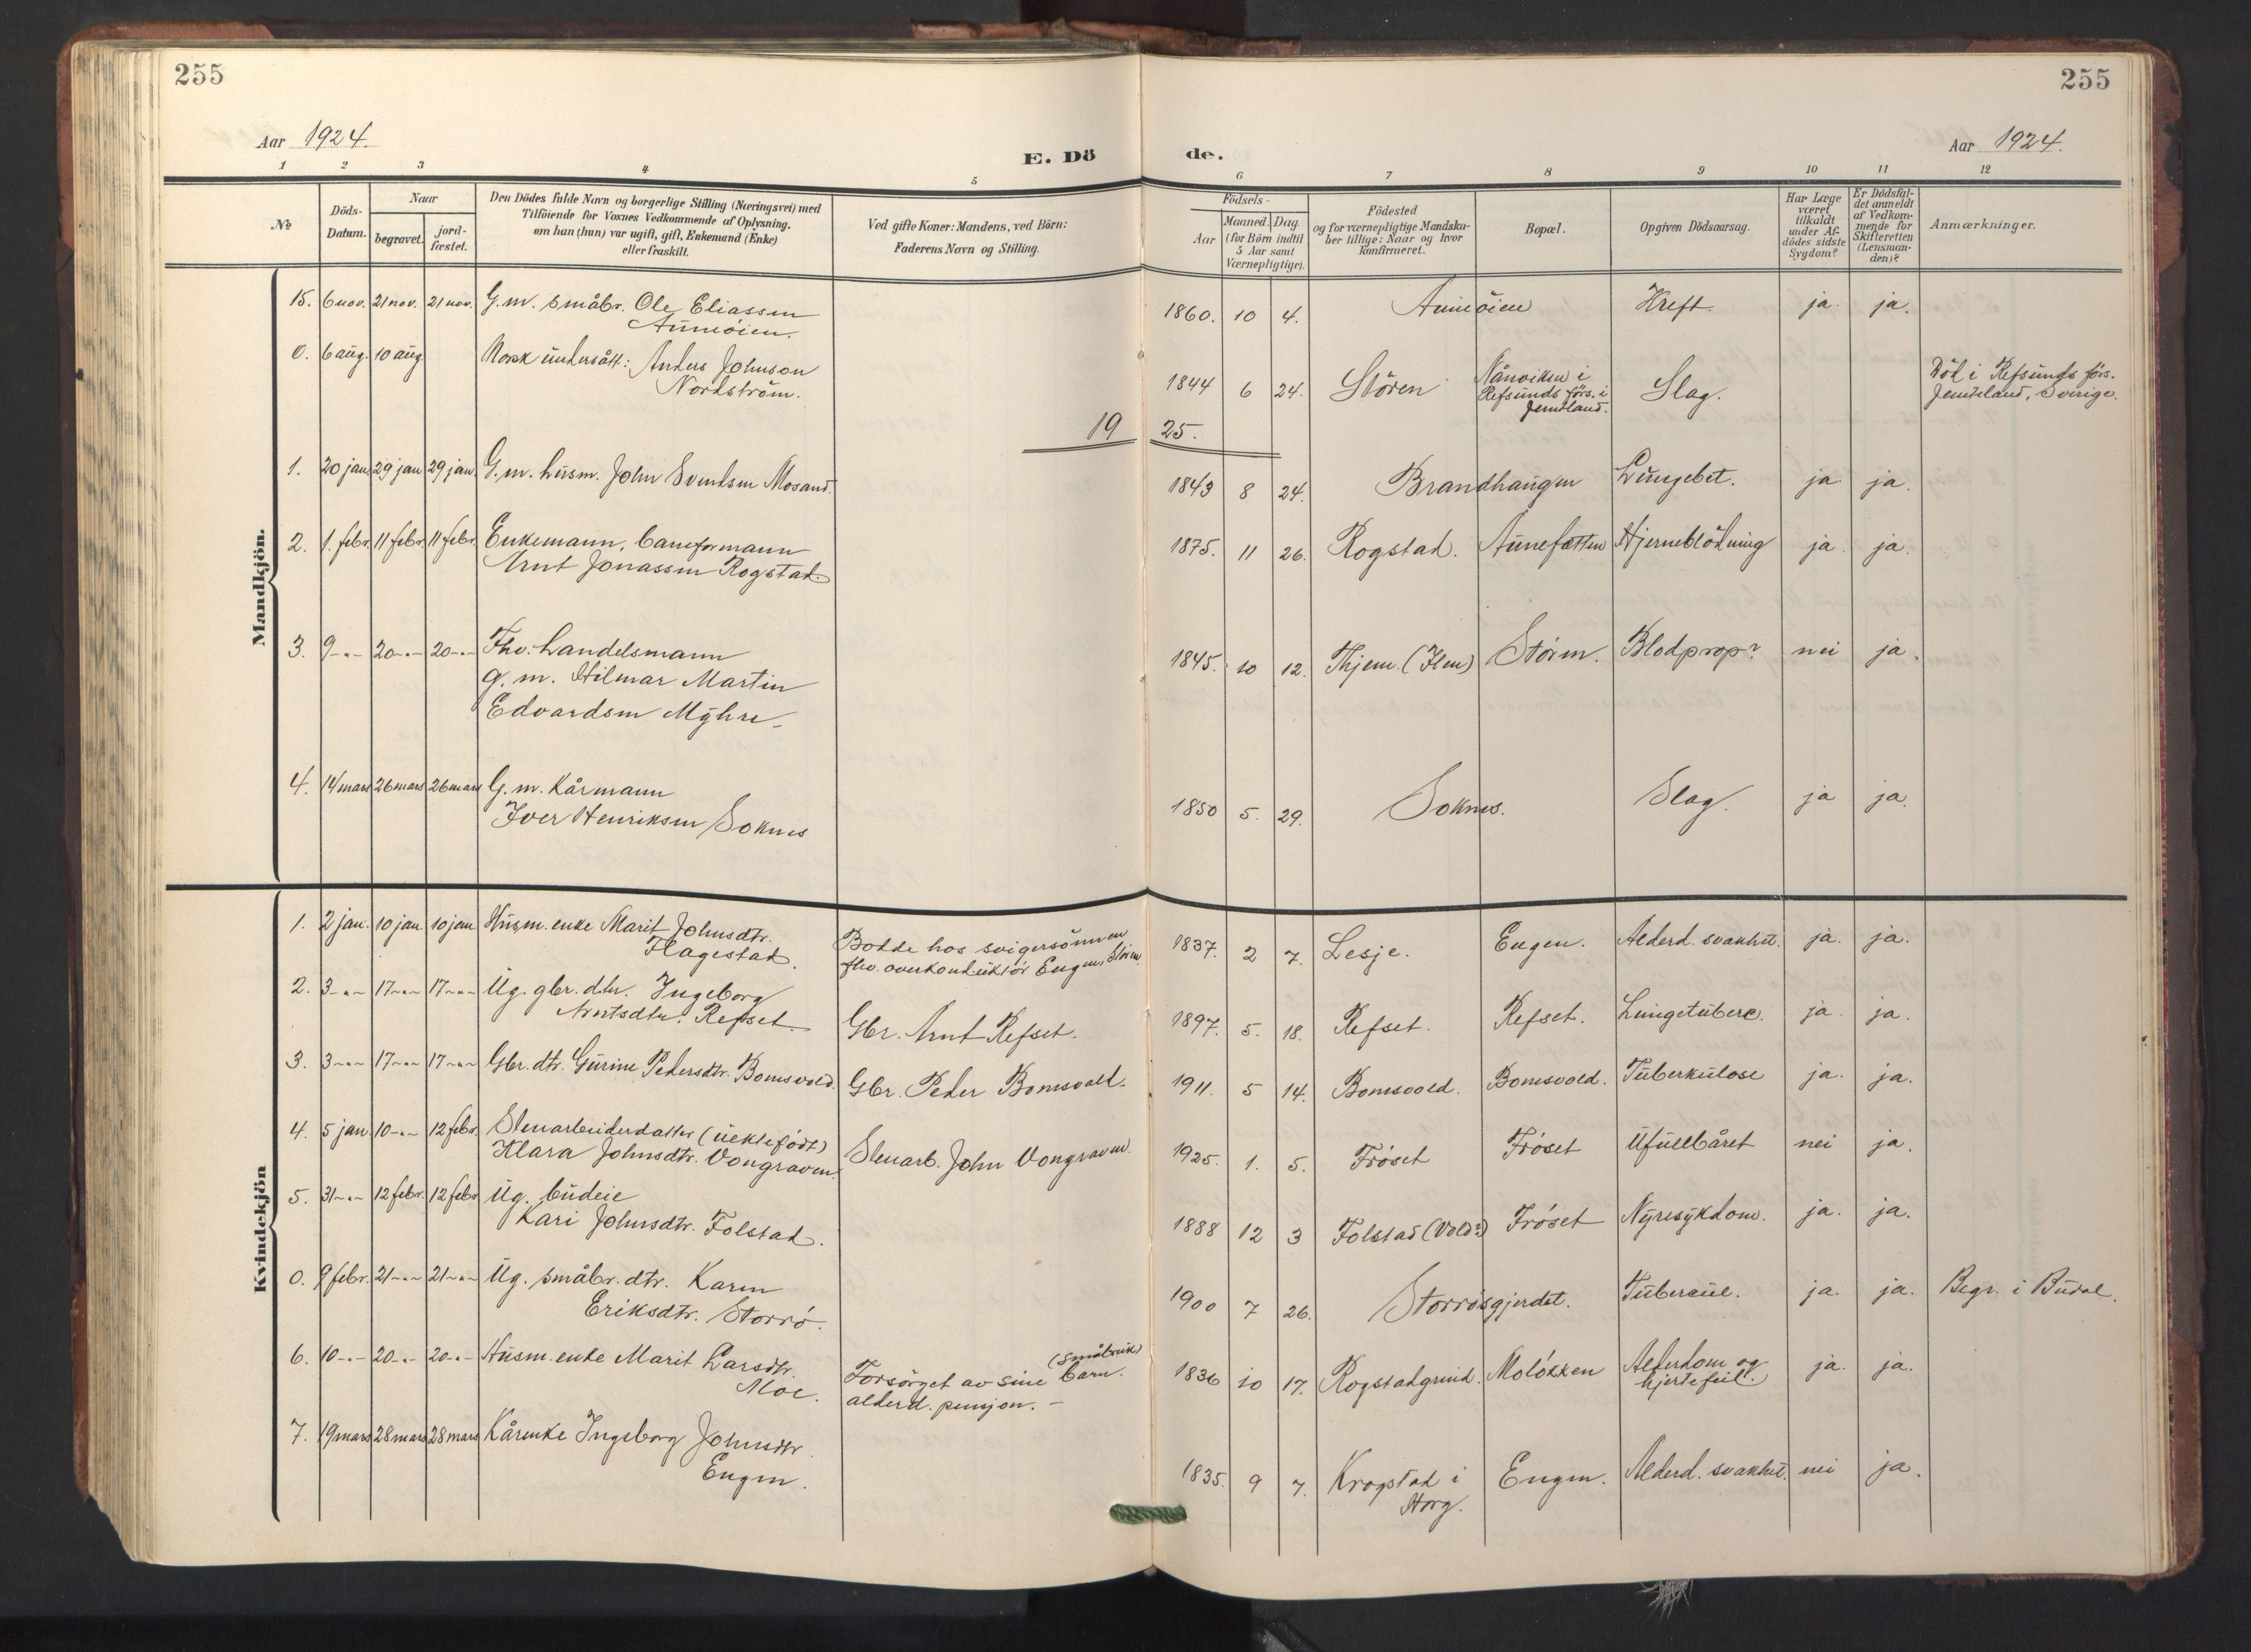 255
255
Aar 1924.
E. Dö de.
Aar 1924.
1 2 3 4 5 6 7 8 9 10 11 12
No
Döds-Datum.
Naar
begravet.
jord-fæstet.
Den Dödes fulde Navn og borgerlige Stilling (Næringsvei) med
Tilföiende for Voxnes Vedkommende af Oplysning,
om han (hun) var ugift, gift, Enkemand (Enke)
eller fraskilt.
Ved gifte Koner: Mandens, ved Börn:
Faderens Navn og Stilling.
Födsels-
Aar
Maaned. Dag.
(for Börn indtil
5 Aar samt
Værnepligtige).
Födested
og for værnepligtige Mandska-
ber tillige: Naar og hvor
konfirmeret.
Bopæl.
Opgiven Dödsaarsag.
Har Læge
været
tilkaldt
under Af-
dödes sidste
Sygdom?
Er Dödsfal-
det anmeldt
af Vedkom-
mende for
Skifteretten
(Lensman-
den)?
Anmærkninger.
Mandkjön.
15. 6 nov. 21 nov. 21 nov. G.m. småbr. Ole Eliassen
Aunöien. 1860. 10 4. Aunöien Kreft. ja. ja.
0. 6 aug. 10 aug. Norsk undersått: Anders Johnson
Nordström. 1844 6 24. Stören Nånviken i
Refsunds förs. i
Jemtland. Slag. Död i Refsunds förs.
Jemteland, Sverige.
19 25.
1. 20 jan. 29 jan. 29 jan. G.m. husm. John Svendsen Mosand. 1843 8 24. Brandhaugen Lungebet. ja. ja.
2. 1. febr. 11 febr. 11 febr. Enkemann, baneformann
Arnt Jonassen Rogstad. 1875. 11 26. Rogstad. Aunefætten Hjerneblödning ja ja.
3. 9-"- 20-"- 20-"- Fhv. handelsmann
g. m. Hilmar Martin
Edvardsen Myhre 1845. 10 12. Thjem. (Ilen) Stören. Blodprop? nei ja.
4. 14 mars 26 mars 26 mars G. m. Kårmann
Iver Henriksen Soknes 1850 5. 29. Soknes. Slag. ja ja.
Kvindekjön
1. 2 jan. 10 jan. 10 jan. Husm. enke Marit Johnsdtr.
Flagestad. Bodde hos svigersønnen
fhv. overkonduktör Engen, Stören. 1837. 2 7. Lesje. Engen. Alderd. svakhet. ja. ja.
2. 3-"- 17-"- 17-"- Ug. gbr. dtr. Ingeborg
Arntsdtr. Refset. Gbr. Arnt Refset. 1897. 5. 18. Refset. Refset. Lungetuberc. ja. ja.
3. 3-"- 17-"- 17-"- Gbr. dtr. Gurine Pedersdtr. Bonesvold. Gbr. Peder Bonesvold. 1911. 5 14. Bonesvold. Bonesvold. Tuberkulose ja. ja.
4. 5 jan. 10-"- 12 febr. Stenarbeiderdatter (uektefödt)
Klara Johnsdtr. Vongraven. Stenarb. John Vongraven. 1925. 1. 5. Fröset Fröset Ufullbåret nei ja.
5. 31-"- 12 febr. 12 febr. Ug. budeie
Kari Johnsdtr. Folstad. 1888 12 3 Folstad (Vold?) Fröset Nyresykdom. ja. ja.
0. 9 febr. 21-"- 21-"- Ug. småbr. dtr. Karen
Eriksdtr. Storrö. 1900 7 26. Storrösgjerdet. Tubercul. ja. ja. Begr. i Budal.
6. 10-"- 20-"- 20-"- Husm. enke Marit Larsdtr.
Moe. Forsörget av sine barn. (småbruk)
alderd. pensjon. – 1836 10 17. Rogstadgrind. Molökken Alderdom og
hjertefeil. ja. ja.
7. 19 mars 28 mars 28 mars Kårenke Ingeborg Johnsdtr.
Engen. 1835. 9 7. Krogstad i
Horg. Engen. Alderd. svakhet. nei ja.